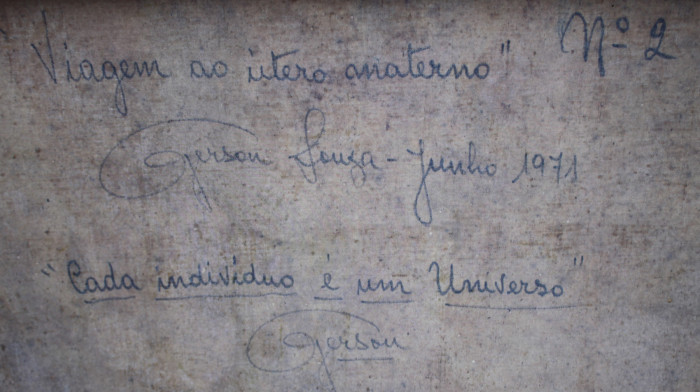 Viagem ao útero materno" Nº 2
Gerson Souza - Junho 1971
"Cada indivíduo é um Universo"
Gerson